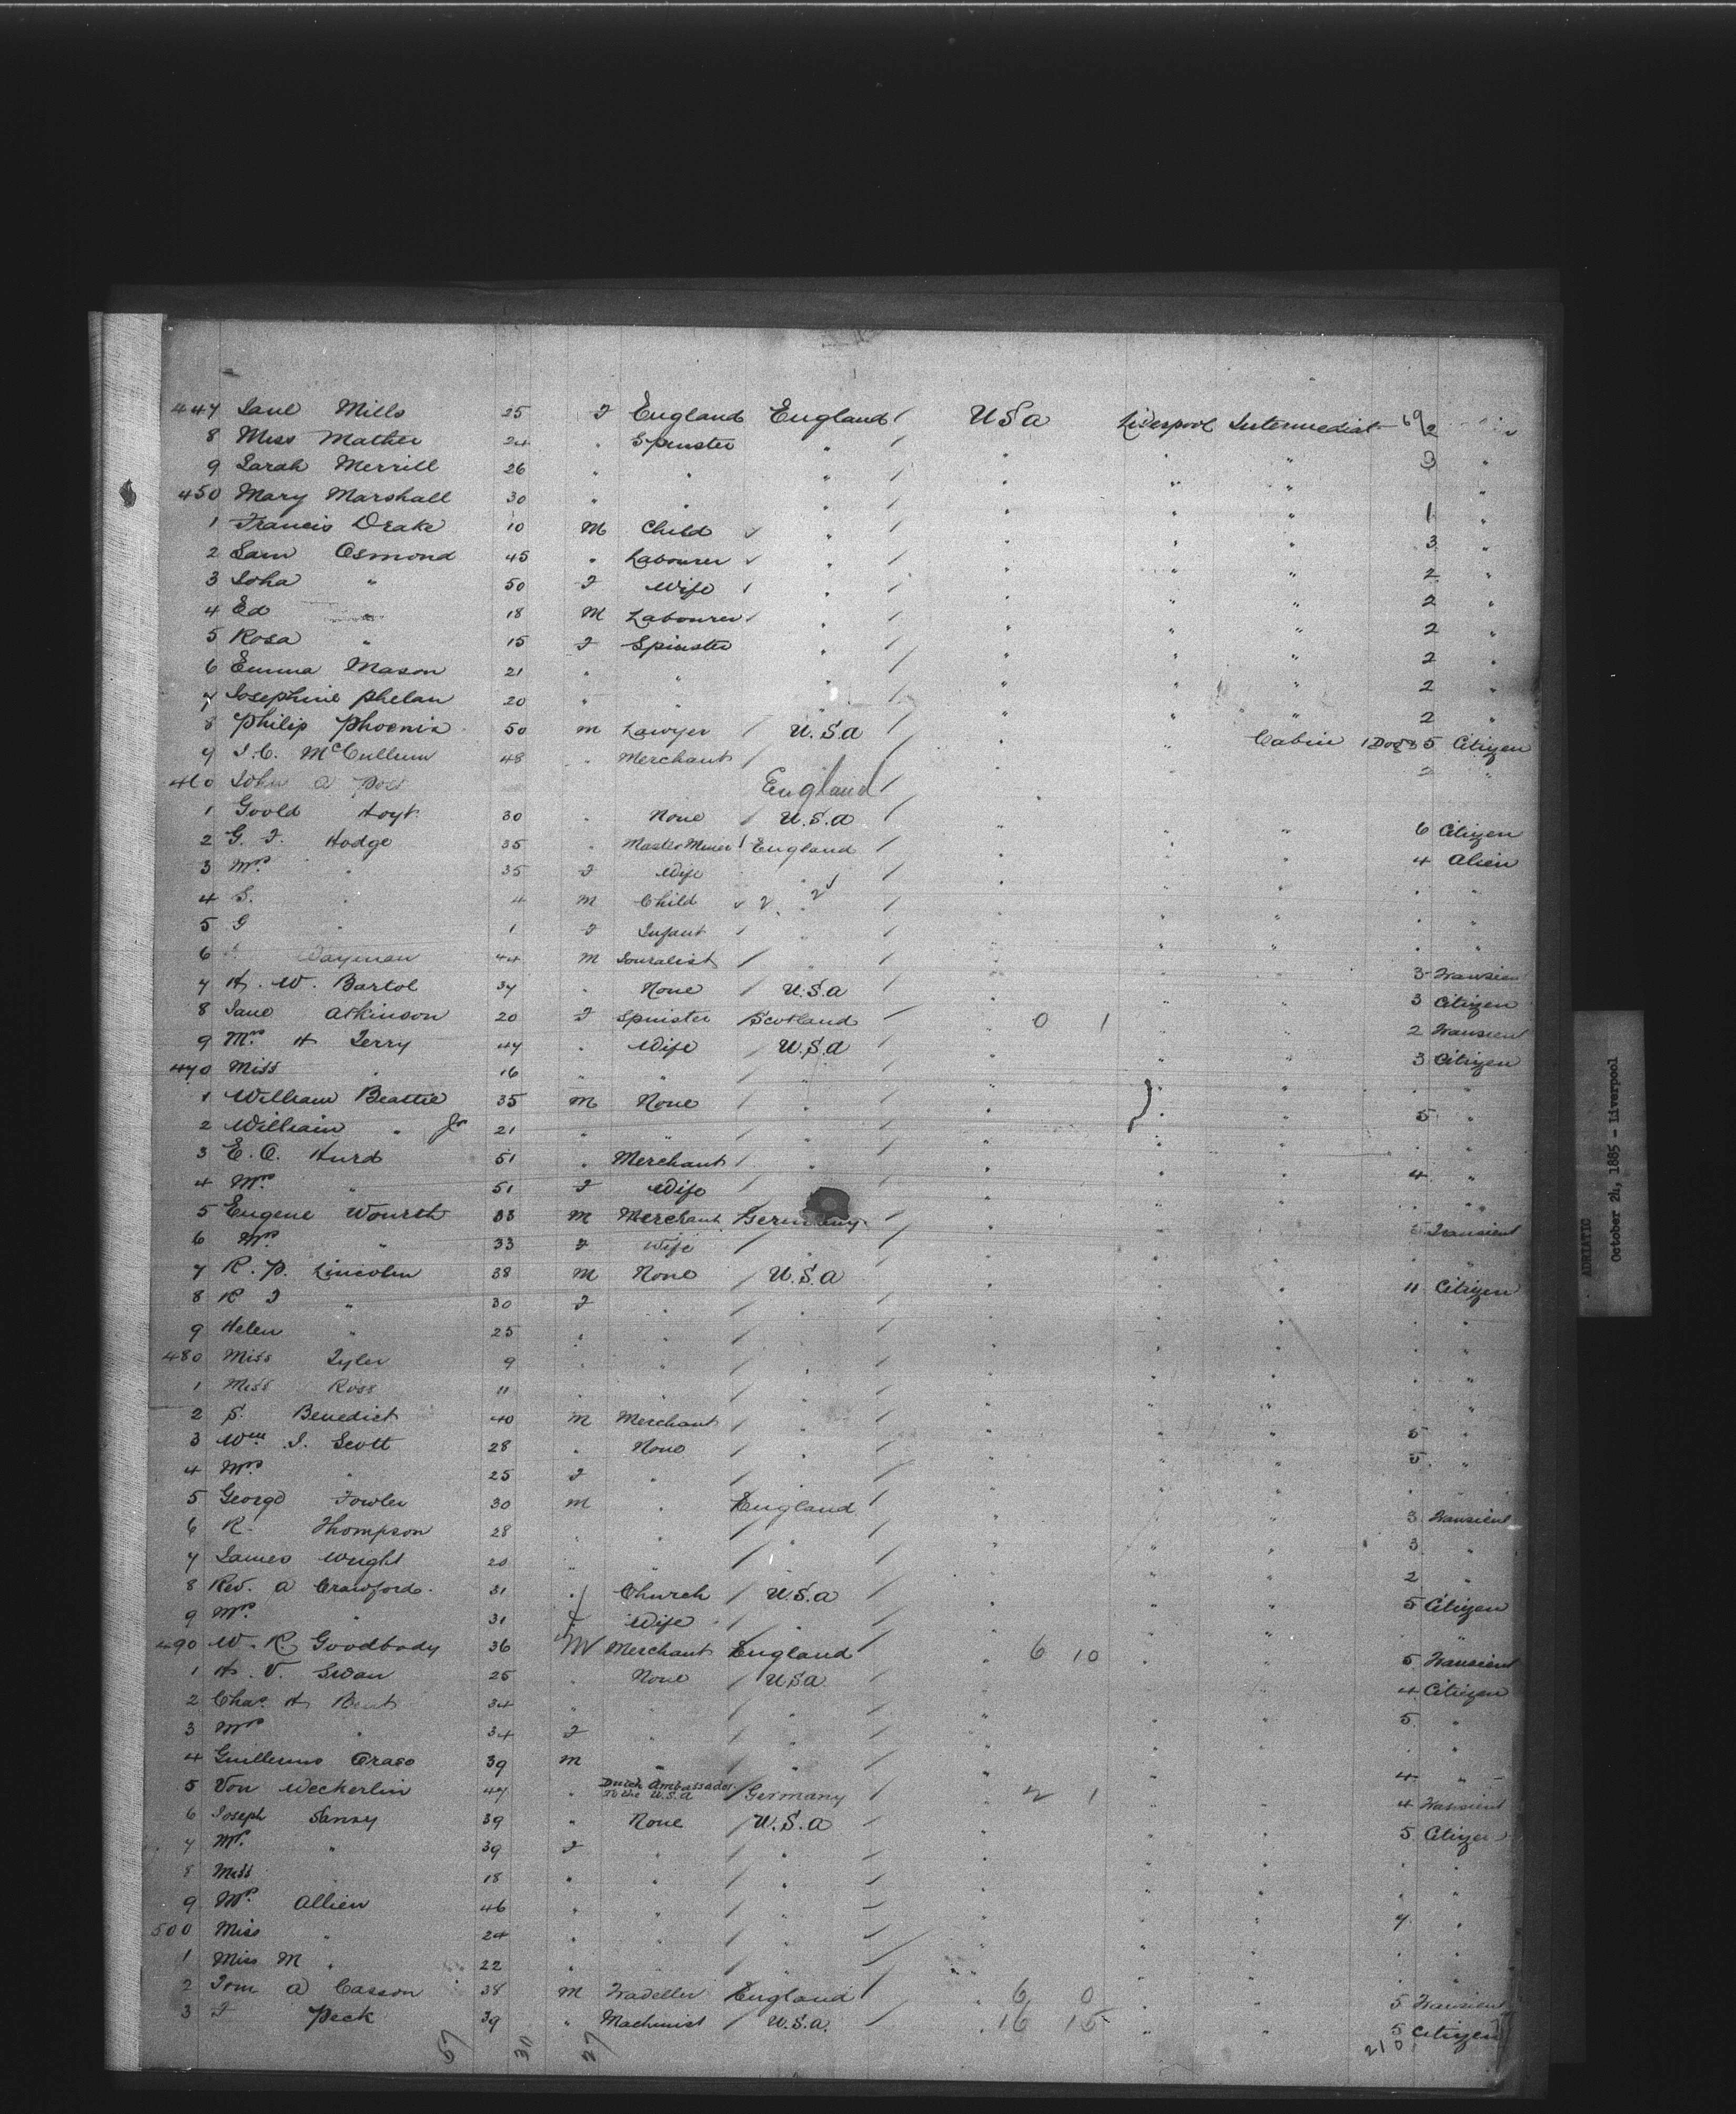 447 Jane Mills 25 F England England / USA Liverpool Intermediate 2
8 Miss Mather 24 " Spinster " / " " " 3 "
9 Sarah Merrill 26 " " " / " " " "
450 Mary Marshall 30 " " " / " " " 1 "
1 Francis Drake 10 M Child " / " " " 3 "
2 Sam Osmond 45 " Labourer " / " " " 2 "
3 " 50 F Wife " / " " " 2 "
4 Ed " 18 M Labourer " / " " " 2 "
5 Rosa " 15 F Spinster " / " " " 2 "
6 Emma Mason 21 " " " / " " " 2 "
7 Josephine Phelan 20 " " " / " " " 2 "
8 Philip Phoenix 50 M Lawyer / U.S.A / " " Cabin 5 Citizen
9 J.C. McCullum 48 " Merchant / " 2 "
460 John A England /
1 Goold Hoyt 30 " None / U.S.A / " " 6 Citizen
2 G. F. Hodge 35 " Master Miner / England / " " 4 Alien
3 Mrs " 35 F Wife " / " " " " "
4 S. " 4 M Child " / " " " " "
5 G " 1 F Infant / " / " " " " "
6 Wayman 44 M Jouralist / " / " " " 3 Transient
7 H. W. Bartol 37 " None / U.S.A / " " " 3 Citizen
8 Jane Atkinson 20 F Spinster / Scotland / " 0 1 " " 2 Transient
9 Mrs H Terry 47 " Wife / U.S.A / " " " 3 Citizen
470 Miss " 16 " " / " / " " " " "
1 William Beattie 35 M None / " / " " " 5 "
2 William " Jr 21 " " / " / " " " " "
3 E. O. Hurd 51 " Merchant / " / " " " 4 "
4 Mrs " 51 F Wife / " / " " " " "
5 Eugene Wourth 38 M Merchant / Germany / " " " 5 Transient
6 Mrs " 33 F Wife / " / " " " " "
7 R. P. Lincoln 38 M None / U.S.A / " " " 11 Citizen
8 R F " 30 F " / " / " " " " "
9 Helen " 25 " " / " / " " " " "
480 Miss Tyler 9 " " / " / " " " " "
1 Miss Ross 11 " " / " / " " " " "
2 S. Benedict 40 M Merchant / " / " " " 5 "
3 Wm J. Scott 28 " None / " / " " " 5 "
4 Mrs " 25 F " / " / " " " " "
5 George Fowler 30 M " / England / " " " 3 Transient
6 R. Thompson 28 " " / " / " " " 3 "
7 James Wright 20 " " / " / " " " 2 "
8 Rev. A Crawford 31 " Church / U.S.A / " " " 5 Citizen
9 Mrs " 31 F Wife / " / " " " " "
490 W. R. Goodbody 36 M Merchant / England / " 6 10 " " 5 Transient
1 H. V. Swan 25 " None / USA / " " " 4 Citizen
2 Chas H Bent 34 " " / " / " " " 5 "
3 Mrs " 34 F " / " / " " " " "
4 Guillermo Craso 39 M " / " / " " " 4 "
5 Von Weckerlin 47 " Dutch Ambassador to the U.S.A / Germany / " 2 1 " " 4 Transient
6 Joseph Sanny 39 " None / U.S.A / " " " 5 Citizen
7 Mrs " 39 F " / " / " " " " "
8 Miss " 18 " " / " / " " " " "
9 Mrs Allien 46 " " / " / " " " 7 "
500 Miss " 24 " " / " / " " " " "
1 Miss M " 22 " " / " / " " " " "
2 Tom A Casson 38 M Traveller / England / " 6 0 " " 5 Transient
3 F Peck 39 " Machinist / U.S.A. / " 16 15 " " 5 Citizen
57 30 27 210
ADRIATIC
October 24, 1885 - Liverpool